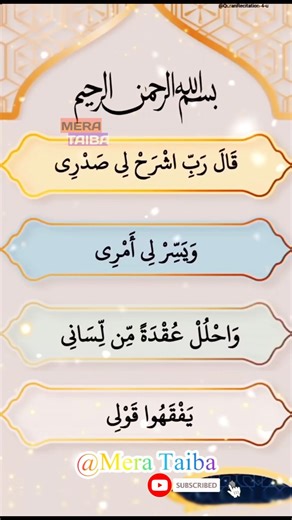 @Quranrecitation-4-u
بسم الله الرحمن الرحيم
MERA
TAIBA
قَالَ رَبِّ اشْرَحْ لِى صَدْرِى
وَيَسِّرْ لِى أَمْرِى
وَاحْلُلْ عُقْدَةً مِّن لِّسَانِى
يَفْقَهُوا قَوْلِى
@Mera Taiba
SUBSCRIBED